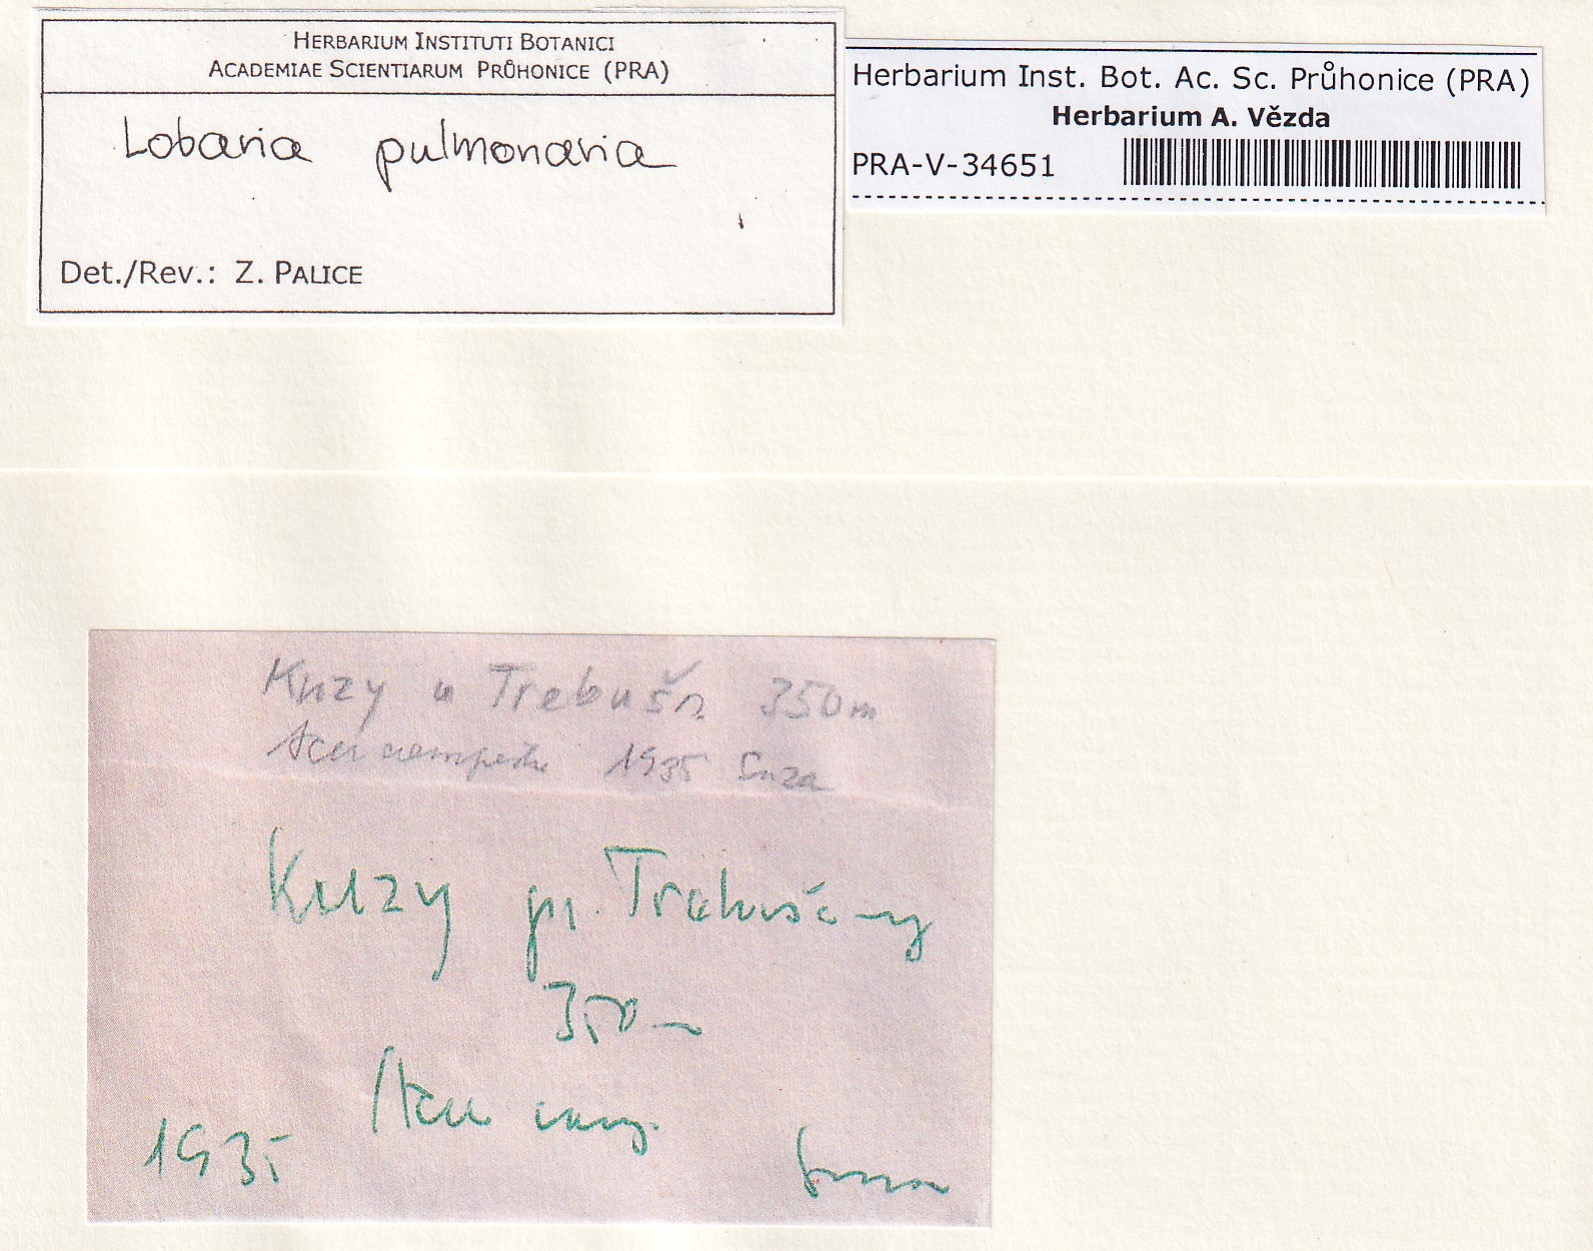 HERBARIUM INSTITUTI BOTANICI
ACADEMIAE SCIENTIARUM PRŮHONICE (PRA)
Lobaria pulmonaria
Det./Rev.: Z. PALICE
Herbarium Inst. Bot. Ac. Sc. Průhonice (PRA)
Herbarium A. Vězda
PRA-V-34651
Kuzy u Trebušn. 350m
Acer campestre 1935 Suza
Kuzy pr. Trebušany
350m
Acer camp.
1935 Suza